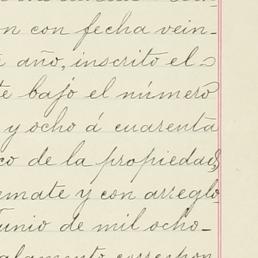 n con fecha vein-
año, inscrito el
te bajo el número
y ocho á cuarenta
co de la propiedad,
emate y con arreglo
unio de mil ocho-